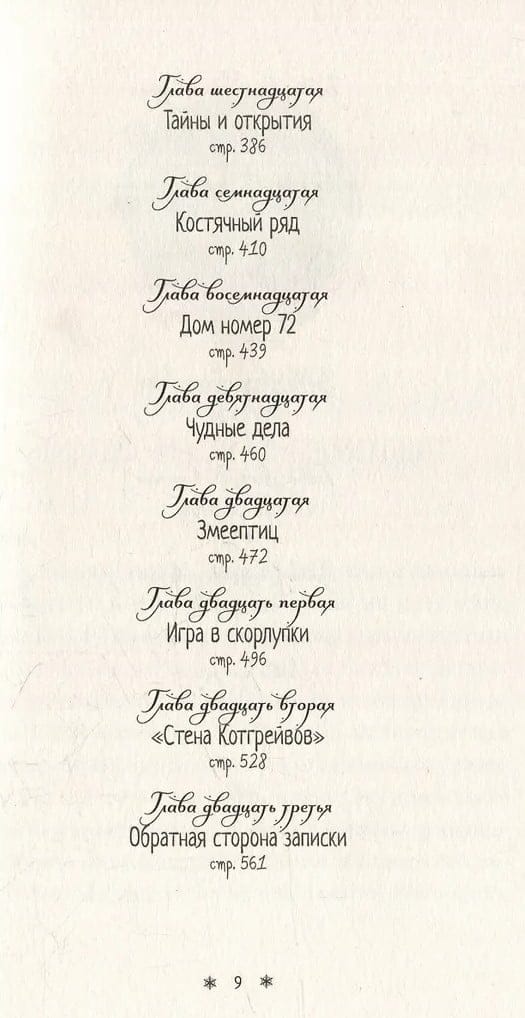 Глава шестнадцатая
Тайны и открытия
стр. 386
Глава семнадцатая
Костячный ряд
стр. 410
Глава восемнадцатая
Дом номер 72
стр. 439
Глава девятнадцатая
Чудные дела
стр. 460
Глава двадцатая
Змеептиц
стр. 472
Глава двадцать первая
Игра в скорлупки
стр. 496
Глава двадцать вторая
«Стена Котгрейвов»
стр. 528
Глава двадцать третья
Обратная сторона записки
стр. 561
9